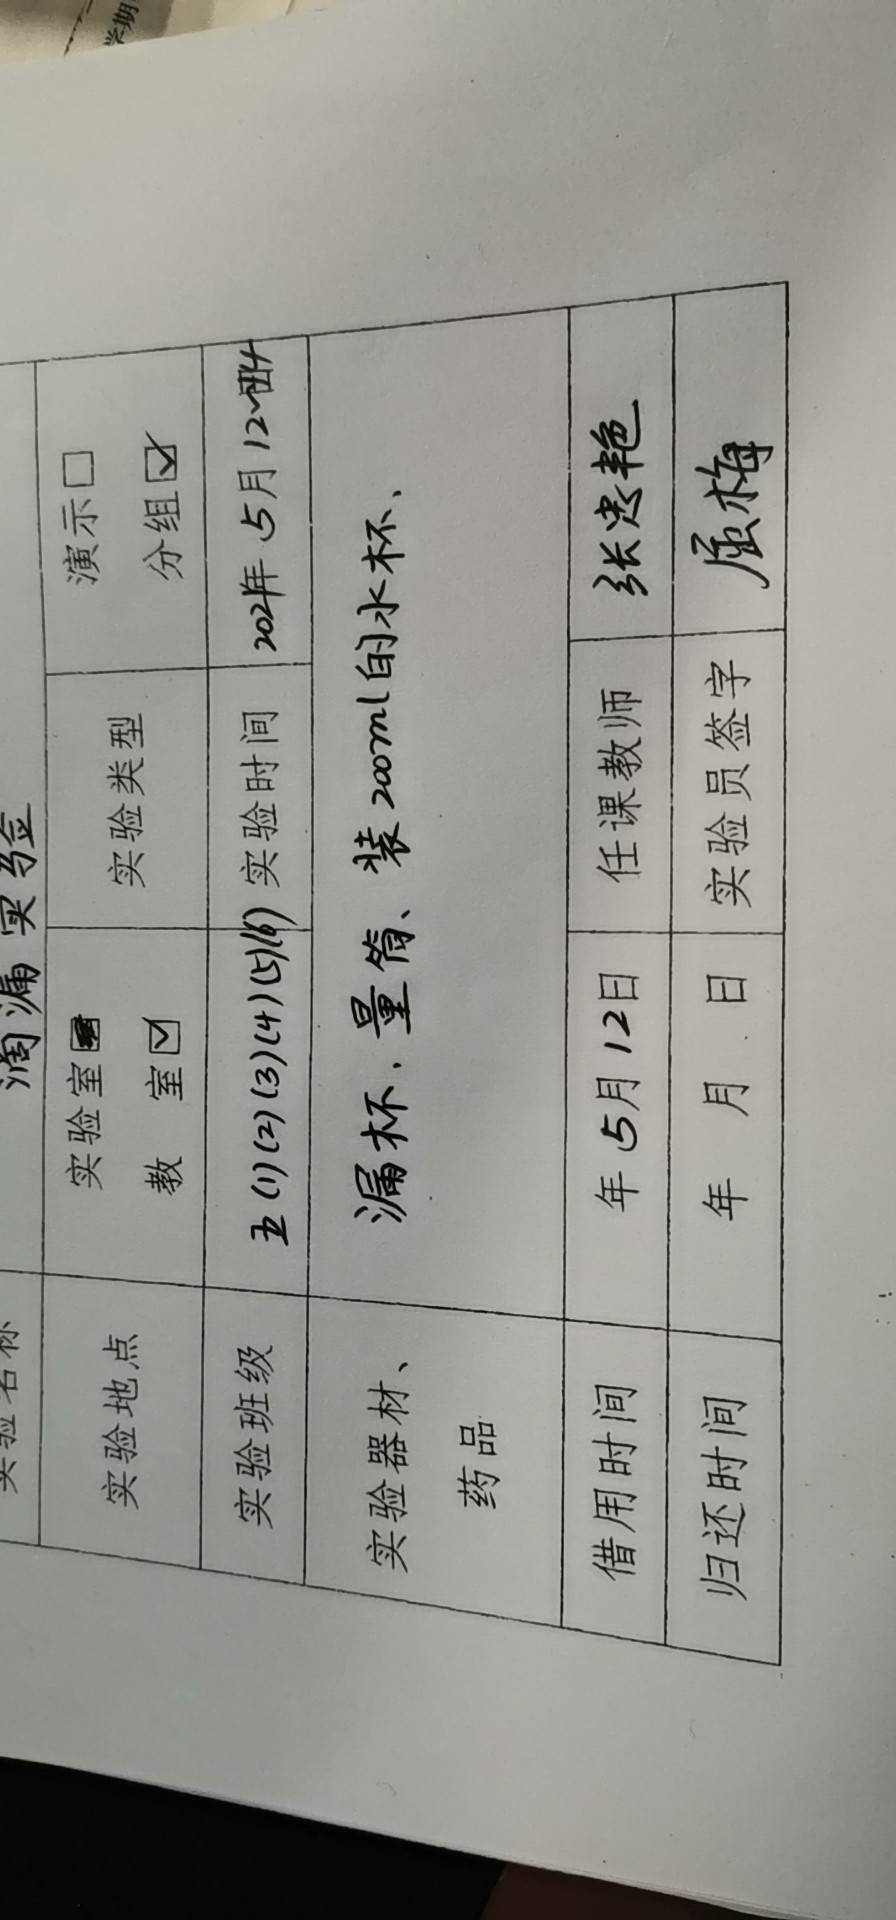 学期
滴漏实验
实验名称
实验地点
实验室
教 室☑
实验类型
演示□
分组☑
实验班级
五(1)(2)(3)(4)(5)(6)
实验时间
2021年5月12
实验器材、
药品
漏杯、量筒、装200ml的水杯、
借用时间
年5月12日
任课教师
张忠艳
归还时间
年 月 日
实验员签字
屈梅